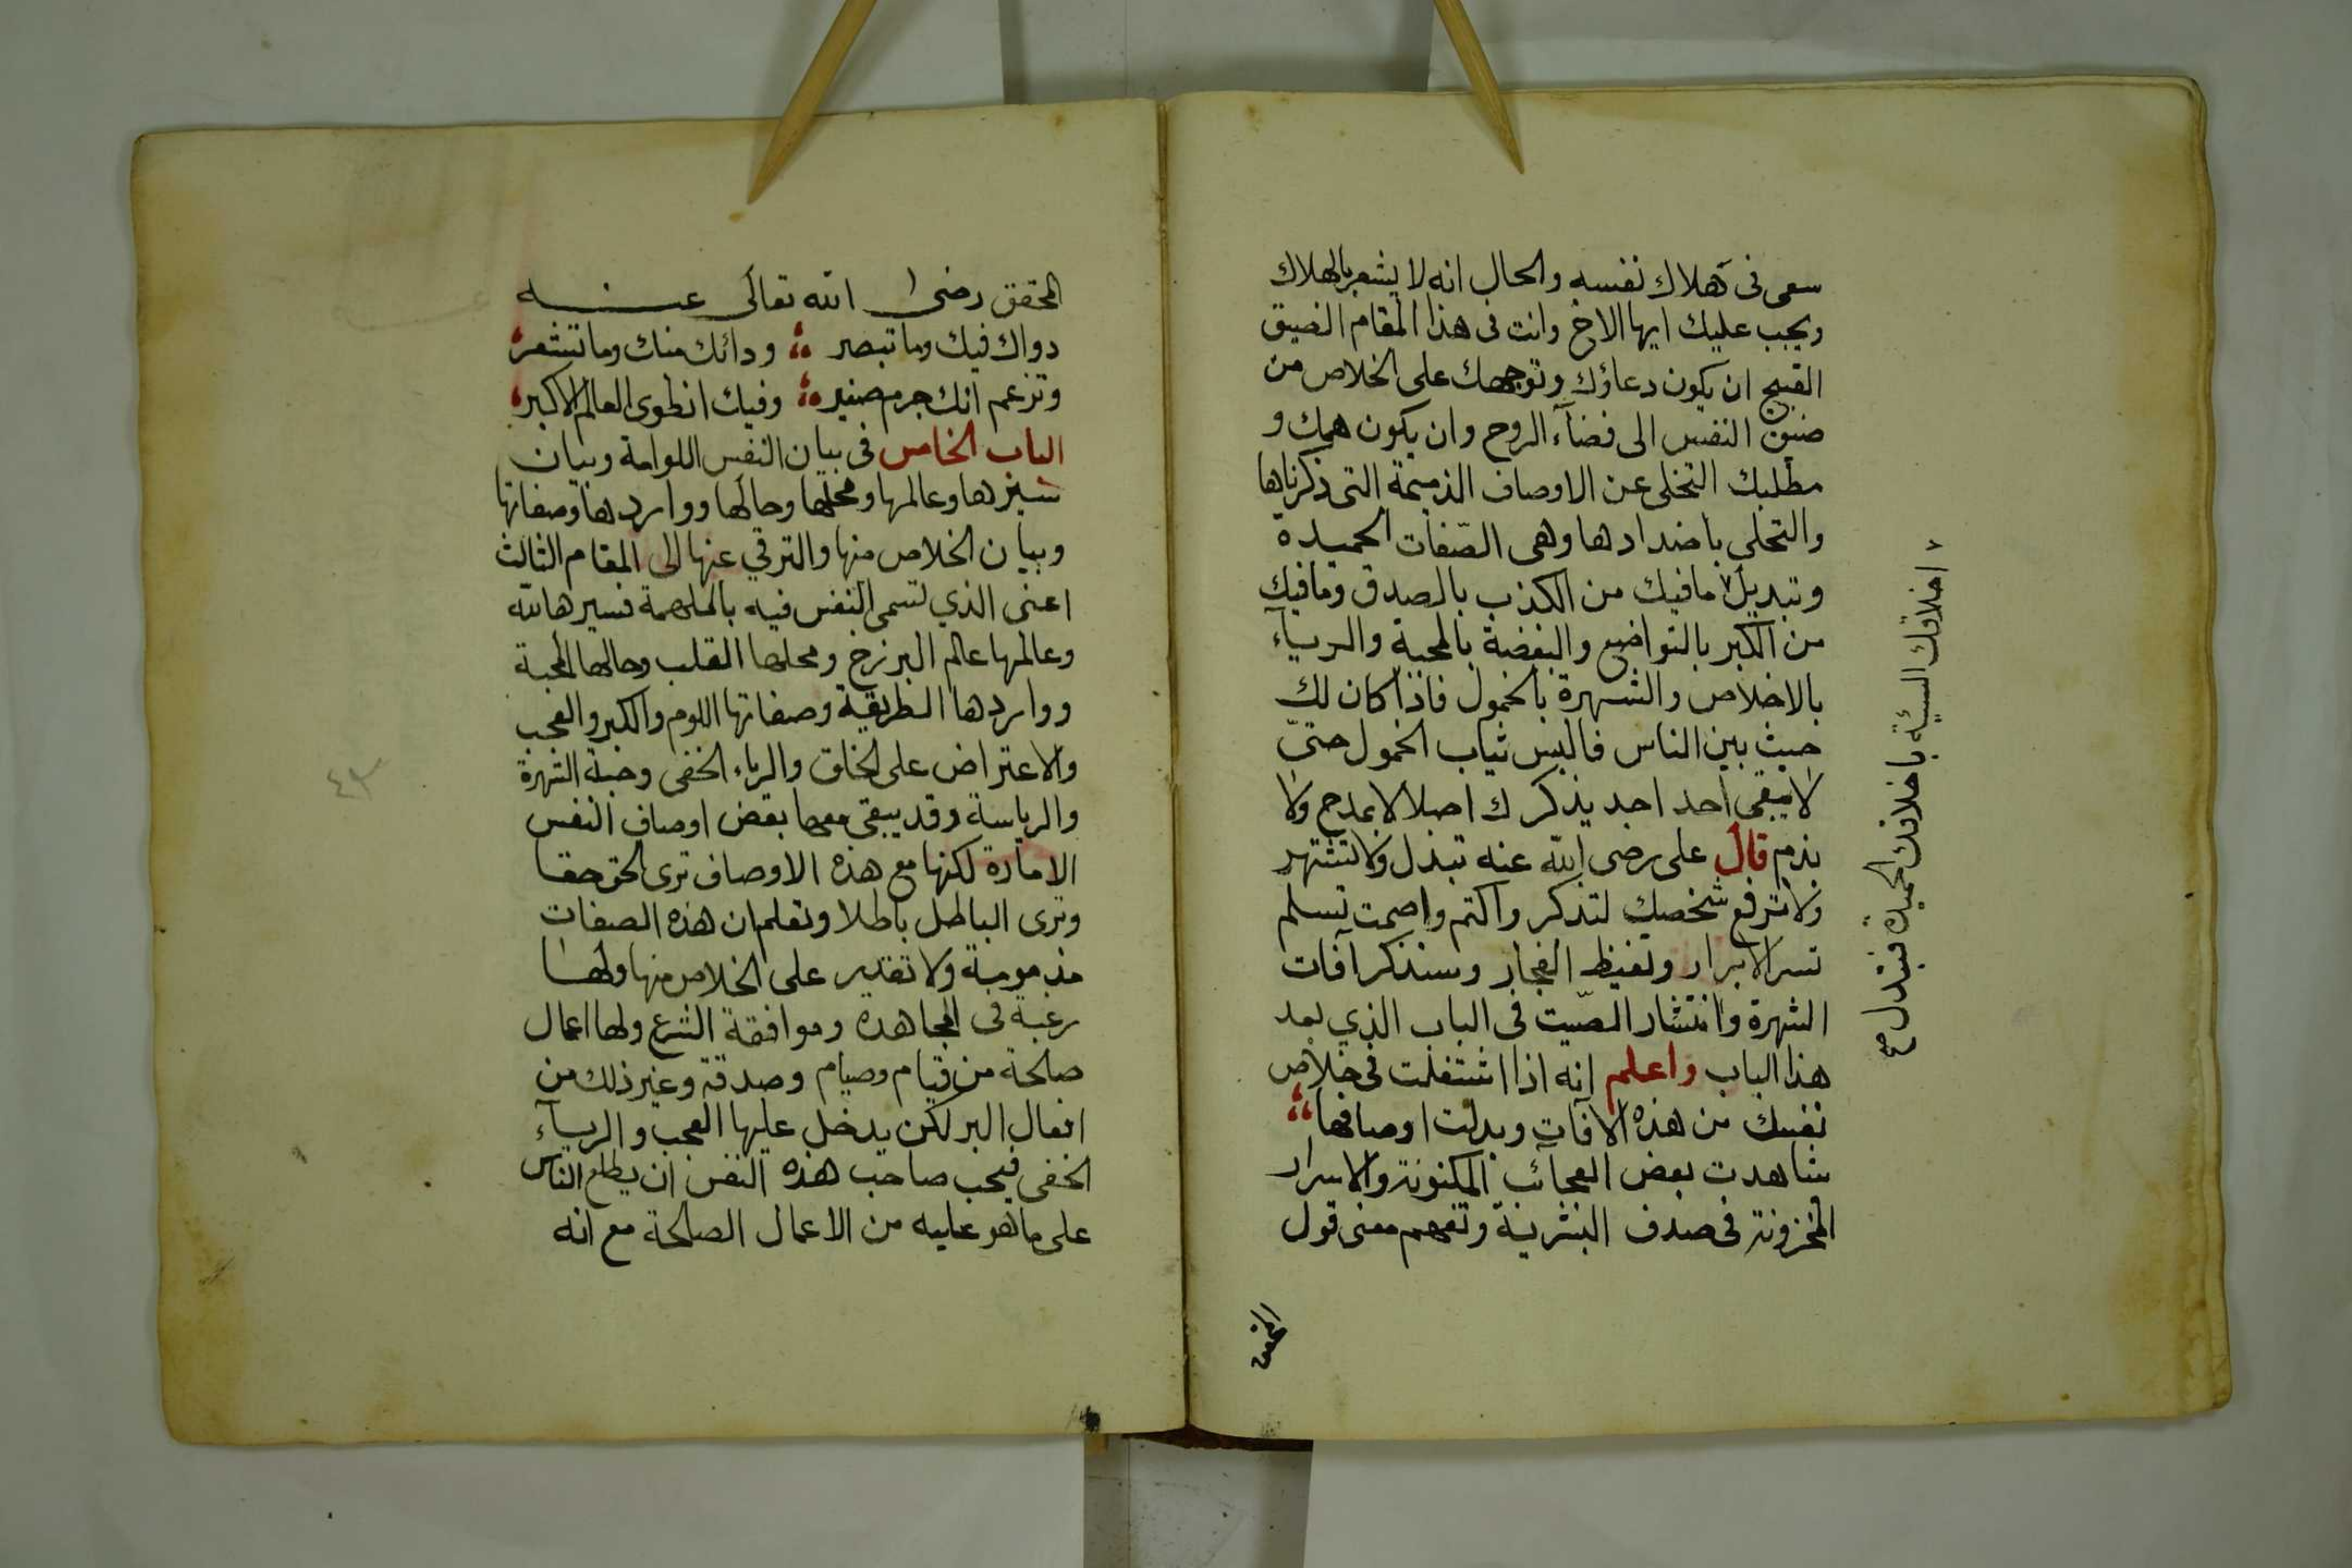 سعى فى هلاك نفسه والحال انه لا يشعر بالهلاك
ويجب عليك ايها الاخ وانت فى هذا المقام الضيق
القبيح ان يكون دعاؤك وتوجهك على الخلاص من
ضيق النفس الى فضآء الروح وان يكون همك و
مطلبك التخلى عن الاوصاف الذميمة التى ذكرناها
والتحلي باضدادها وهى الصّفات الحميدة
وتبديل٧ مافيك من الكذب بالصدق ومافيك
من الكبر بالتواضع والبغضة بالمحبة والريآء
بالاخلاص والشهرة بالخمول فاذا كان لك
صيت بين الناس فالبس ثياب الخمول حتىّ
لا يبقى احد احد يذكرك اصلا لا بمدح ولا
بذم قال على رضى الله عنه تبدل ولا تشتهر
ولا ترفع شخصك لتذكر واكتم واصمت تسلم
تسر الابرار وتغيظ الفجار وسنذكر آفات
الشهرة وانتشار الصّيت فى الباب الذي بعد
هذا الباب واعلم انه اذا اشتغلت فى خلاص
نفسك من هذه الافات وبدلت اوصافها
شاهدت بعض العجآئب المكنونة والاسرار
المخزونة فى صدف البشرية وتفهم معنى قول
المحقق
٧ اخلاقك السيئة باخلاقك الحميدة فتبدل صح
المحقق رضى الله تعالى عنه
دواك فيك وما تبصر ودائك منك وما تشعر
وتزعم انك جرم صغير وفيك انطوى العالم الاكبر
الباب الخامس فى بيان النفس اللوامة وبيان
سيرها وعالمها ومحلها وحالها وواردها وصفاتها
وبيان الخلاص منها والترقي عنها الى المقام الثالث
اعنى الذي تسمى النفس فيه بالملهمة فسيرها لله
وعالمها عالم البرزخ ومحلها القلب وحالها المحبة
وواردها الطريقة وصفاتها اللوم والكبر والعجب
والاعتراض على الخلق والرياء الخفى وحبة الشهرة
والرياسة وقد يبقى معها بعض اوصاف النفس
الامارة لكنها مع هذه الاوصاف ترى الحق حقا
وترى الباطل باطلا وتعلم ان هذه الصفات
مذمومة ولا تقدير على الخلاص منها ولها
رغبة فى المجاهدة وموافقة الشرع ولها اعمال
صالحة من قيام وصيام وصدقة وغير ذلك من
افعال البر لكن يدخل عليها العجب والريآء
الخفى فيحب صاحب هذه النفس ان يطلع الناس
على ما هو عليه من الاعمال الصالحة مع انه